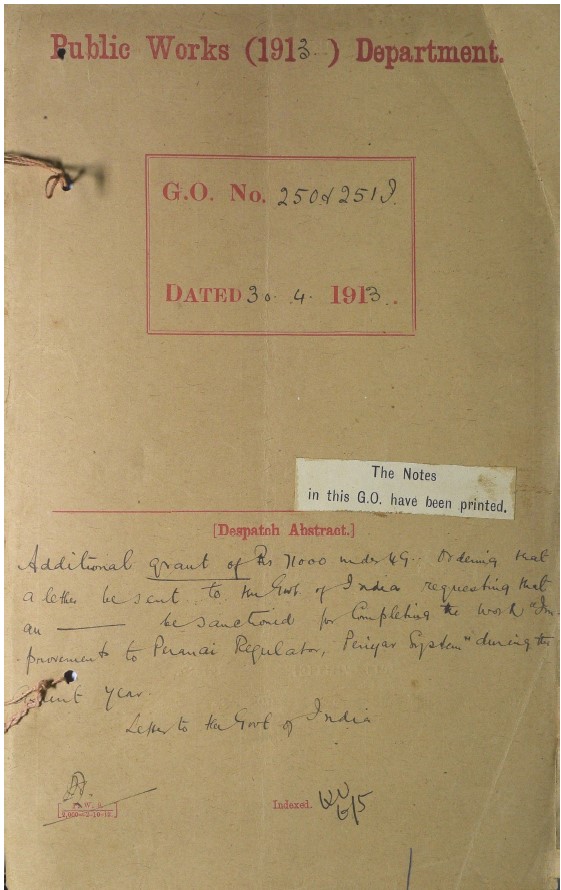 Public Works (1913) Department.
G.O. No. 250 & 251 I.
DATED 30. 4. 1913.
The Notes
in this G.O. have been printed.
[Despatch Abstract.]
Additional grant of Rs 71000 under 49. Ordering that
a letter be sent to the Govt. of India requesting that
an ——— be sanctioned for Completing the work "Im-
provements to Peranai Regulator, Periyar System" during the
year.
Letter to the Govt of India
P. W. D.
Indexed.
6/5